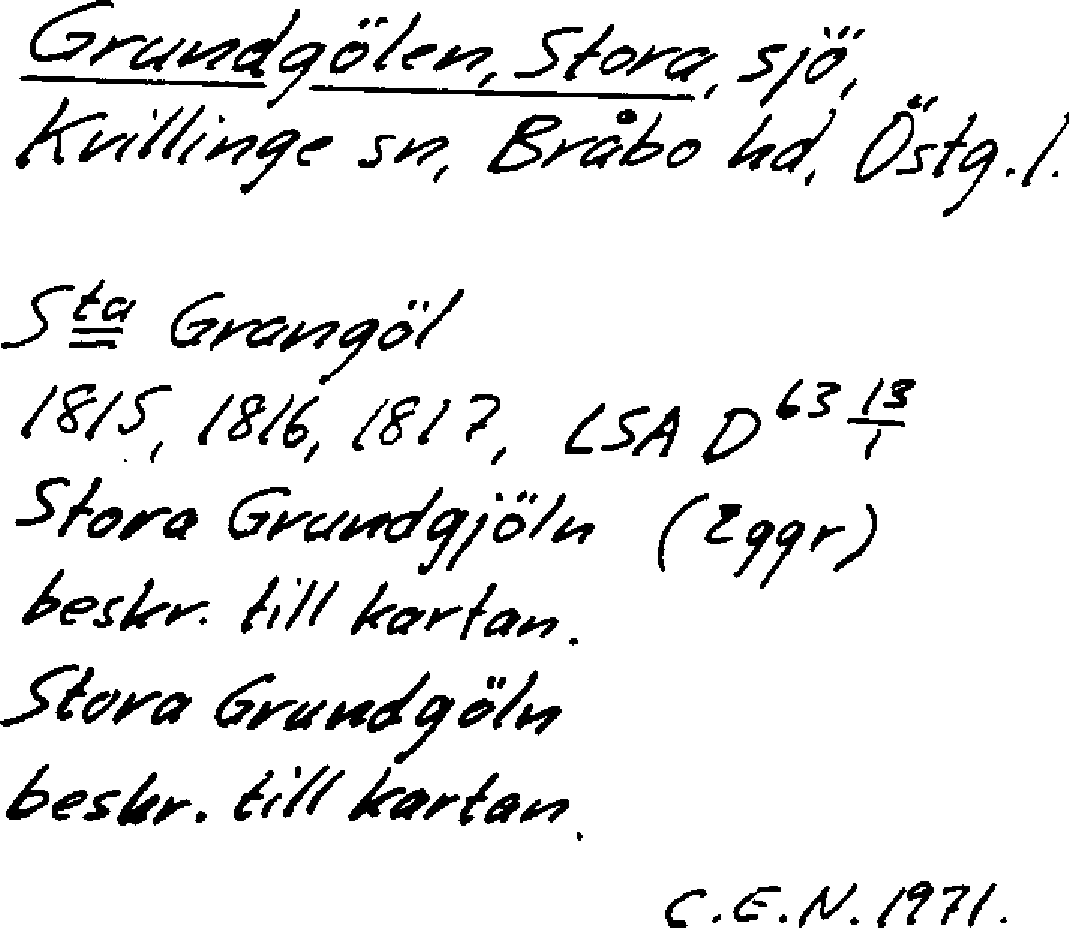 Grundgölen, Stora, sjö,
Kvillinge sn, Bråbo hd, Östg.l.
Sta Grangöl
1815, 1816, 1817, LSA D63 13/1
Stora Grundgjöln (2ggr)
beskr. till kartan.
Stora Grundgöln
beskr. till kartan.
C.E.N. 1971.